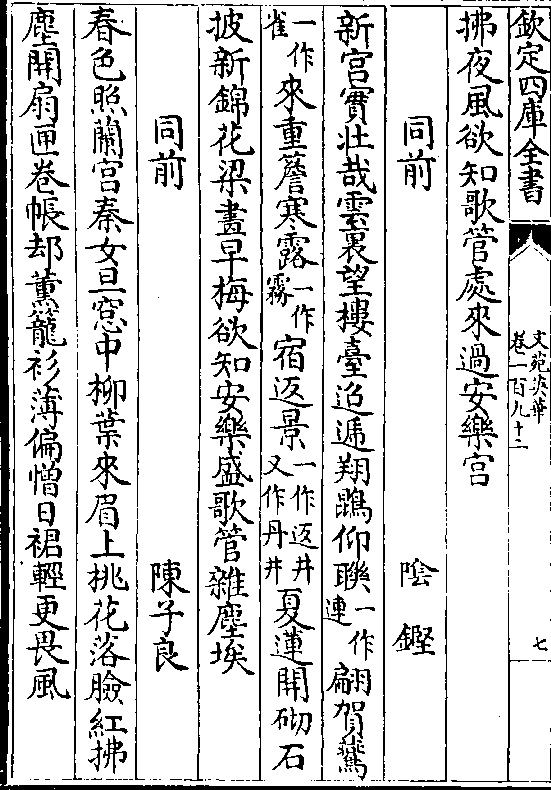 欽定四庫全書
文苑英華
卷一百九十二
七
拂夜風欲知歌管處來過安樂宮
同前
陰鏗
新宮實壯哉雲裏望樓臺迢遞翔鵾仰聯一作連翩賀燕
一作雀來重簷寒露一作霧宿返景一作返井又作丹井夏蓮開砌石
披新錦花梁畫早梅欲知安樂盛歌管雜塵埃
同前
陳子良
春色照蘭宮秦女旦窓中柳葉來眉上桃花落臉紅拂
塵開扇匣卷帳却薰籠衫薄偏憎日裙輕更畏風